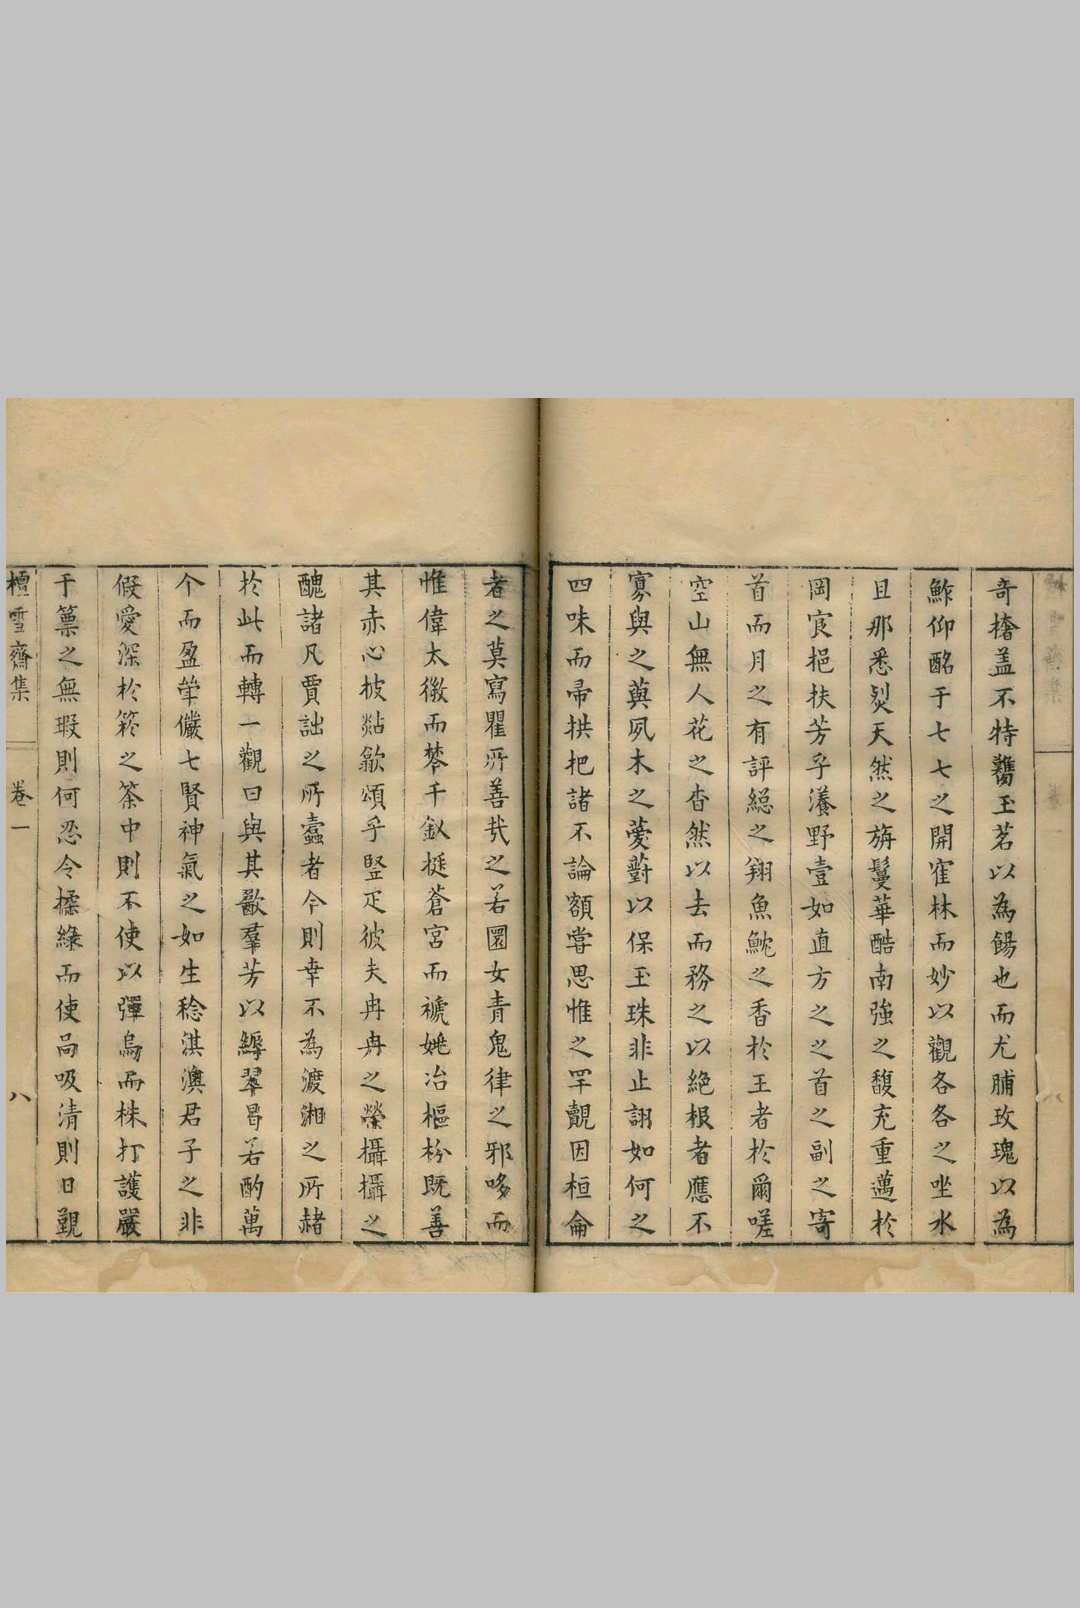 奇檣盖不特蘜玉茗以為餳也而尤脯玫瑰以為
鮓仰酩于七七之開寉林而妙以觀各各之㘴水
且那悉㷊天然之旃鬘華酷南強之馥充重邁於
岡㝐挹扶芳乎瀁野壹如直方之之首之副之寄
首而月之有評緫之翔魚魫之香於王者於爾嗟
空山無人花之杳然以去而務之以絕根者應不
寡與之𦽦夙木之薆薱以保玉珠非止詡如何之
四味而帚拱把諸不論額嘗思惟之罕覿因桓侖
者之莫寫瞿所善㢤之若園女青鬼律之邪哆而
惟偉太微而棽千釵挺蒼宮而褫姽冶樞枌既善
其赤心柀㸃歙頌乎竪疋彼夫冉冉之榮攝攝之
醜諸凡賈詘之所蠹者今則幸不為渡湘之所赭
於此而轉一觀曰與其歠羣芳以縟翠曷若酌萬
个而盈肈儼七賢神氣之如生稔淇澳君子之非
假愛深於箊之荼中則不使以彈烏而株打護嚴
于篻之無瑕則何忍令𣝛緣而使咼吸清則日覲
檀雪齋集　卷一　八